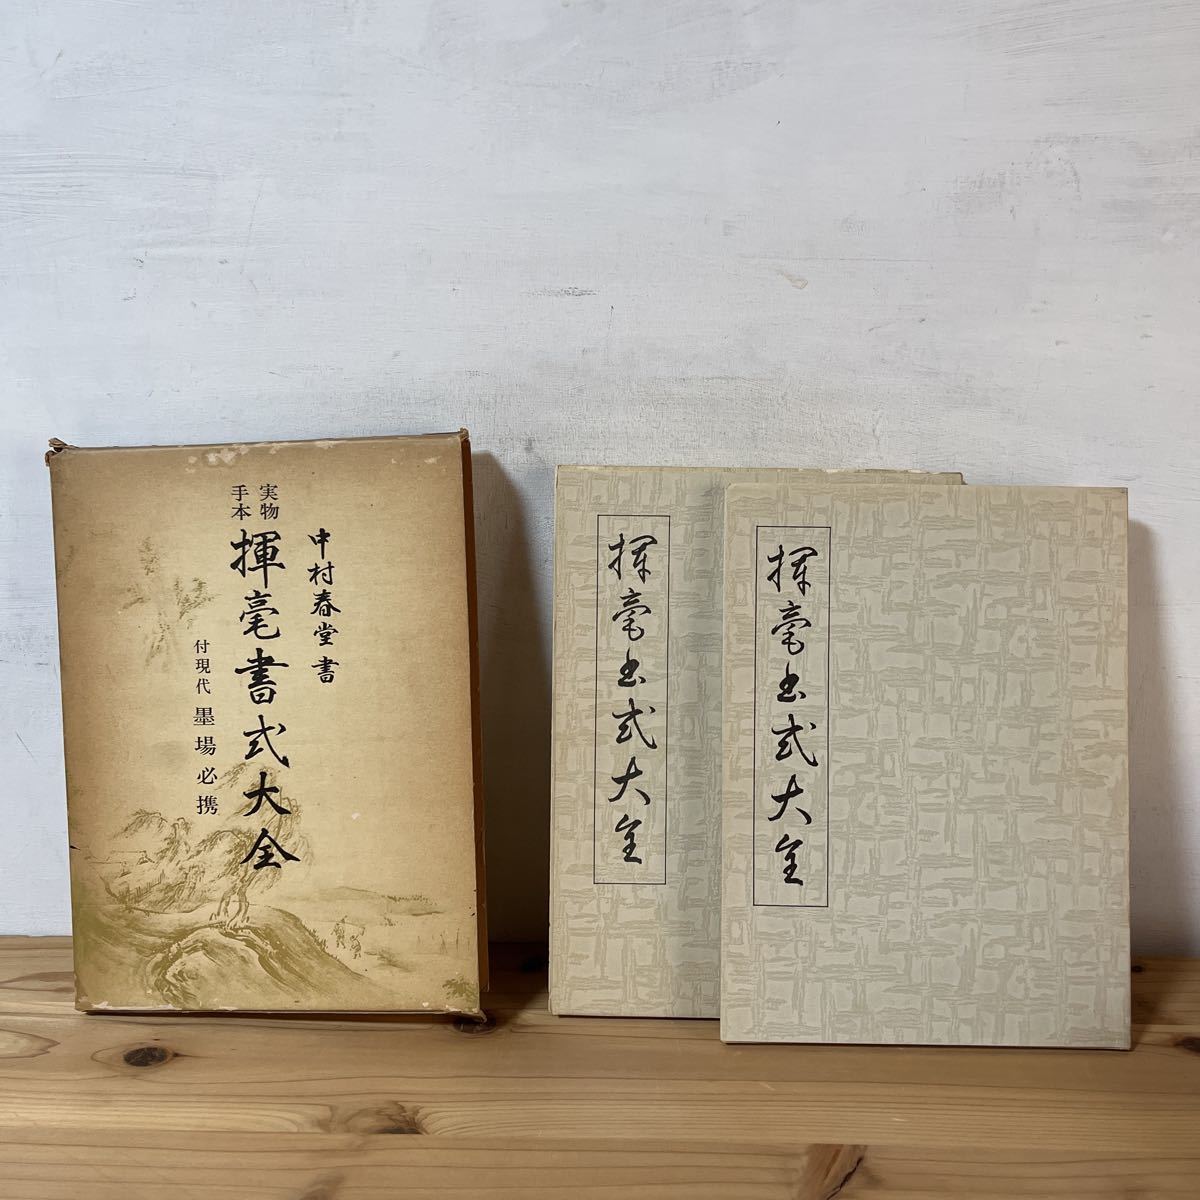 中村春堂書
実物
手本
揮毫書式大全
付現代 墨場必携
揮毫書式大全
揮毫書式大全